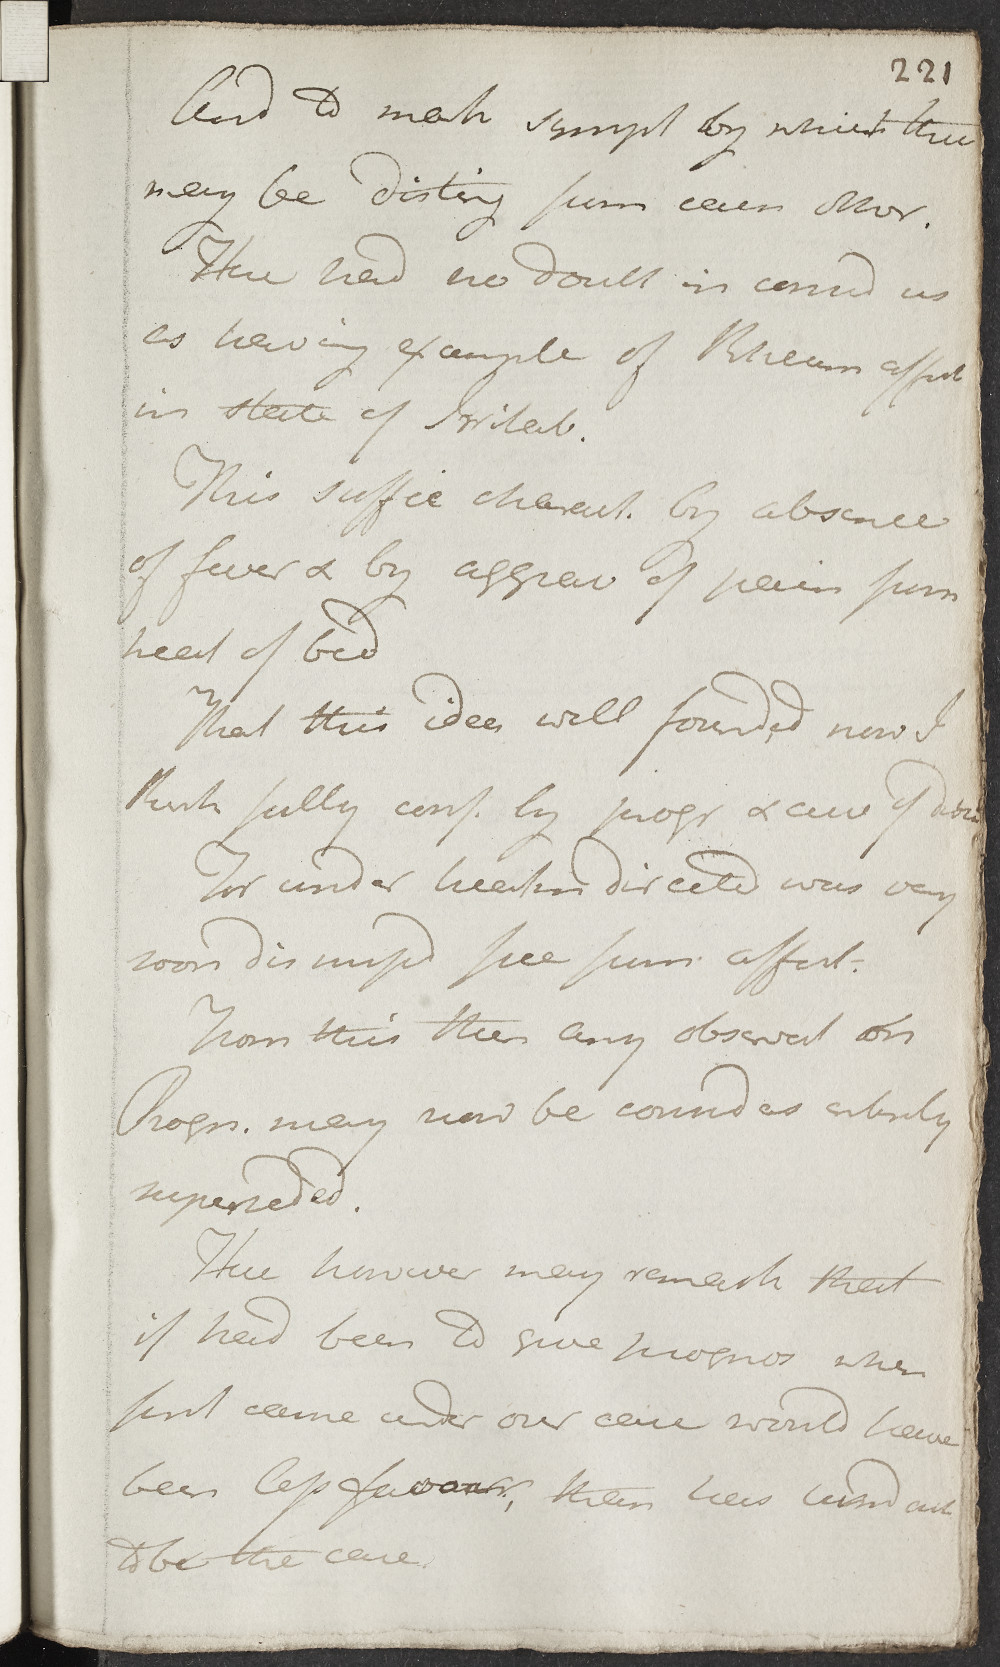 221
And to mark sympt by which these
may be disting from each other.
Here had no doubt in consid us
as having example of Rheum affect
in state of Irritab.
This suffic charact. by absence
of fever & by aggrav of pain from
heat of bed
That this idea well founded now I
think fully conf. by progr & cure of
For under treatm directed was very
soon dismissd free from affect.
From this then any observat on
Progn. may now be consid as entirely
superseded.
Here however may remark that
if had been to give prognos when
first came under our care would have
been less favour, than has turnd out
to be the case.